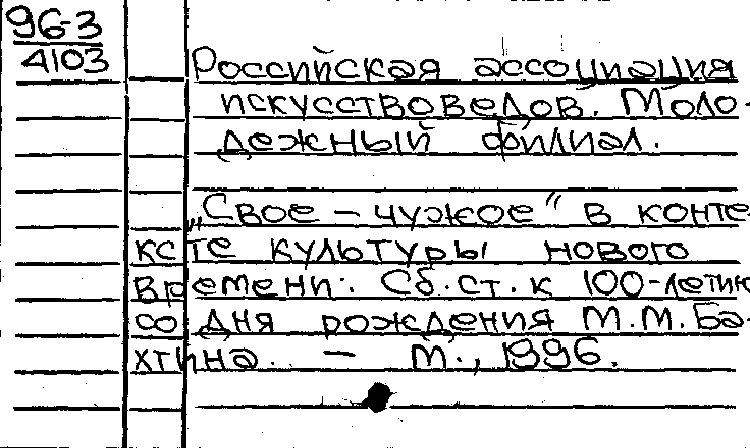 96-3
4103
Российская ассоциация
искусствоведов. Моло-
дежный филиал.
„Свое – чужое" в конте
ксте культуры нового
времени: Сб.ст. к 100-летию
со дня рождения М.М.Ба-
хтина. – М., 1996.